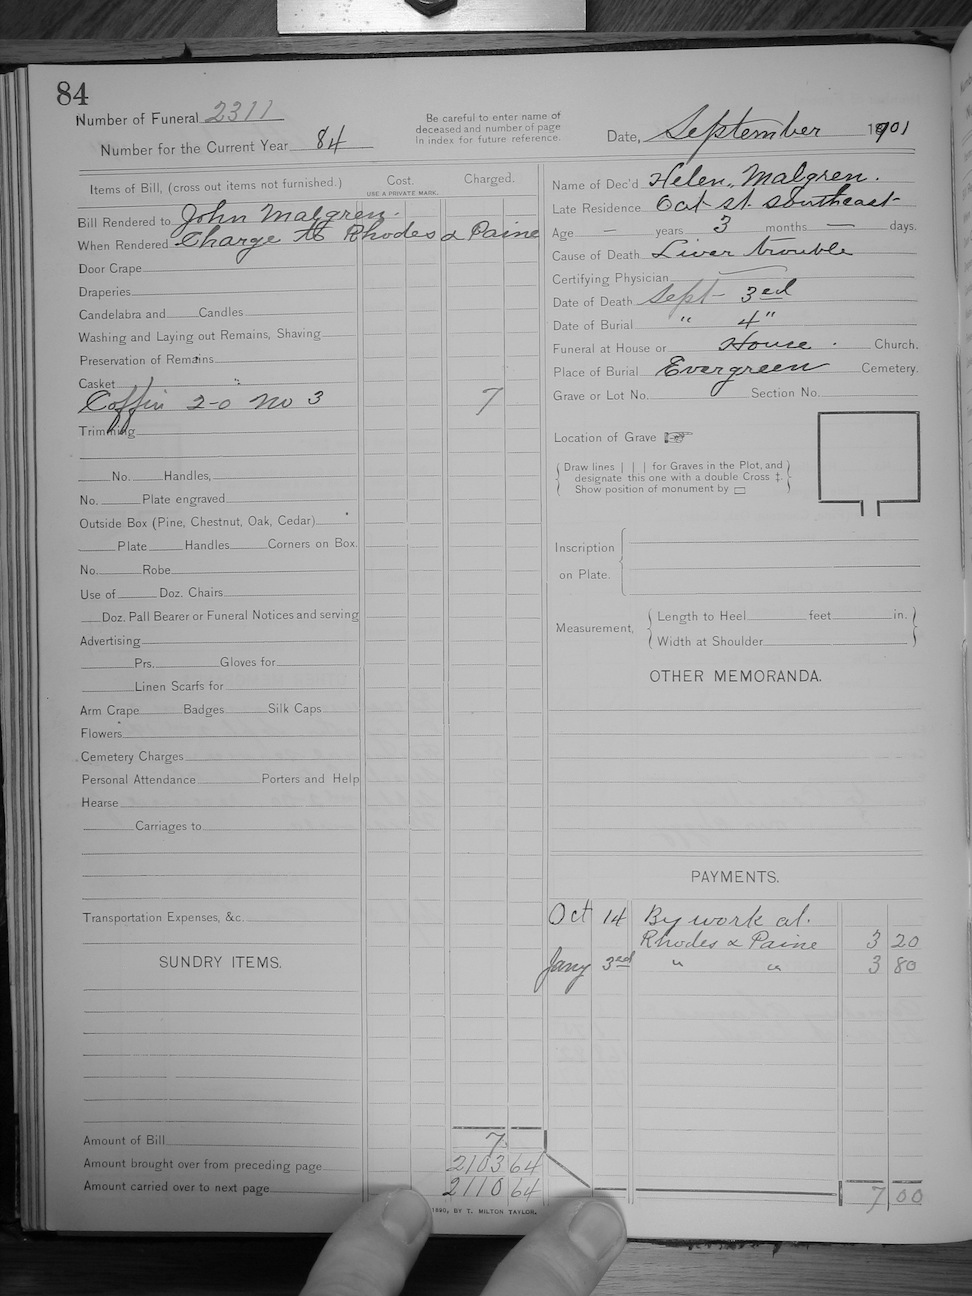 84
Number of Funeral 2311
Number for the Current Year 84
Be careful to enter name of
deceased and number of page
in index for future reference.
Date, September 1901
Items of Bill, (cross out items not furnished.)
Cost.
USE A PRIVATE MARK.
Charged.
Bill Rendered to John Malgren.
When Rendered Charge to Rhodes & Paine
Door Crape
Draperies
Candelabra and Candles
Washing and Laying out Remains, Shaving
Preservation of Remains
Casket
Coffin 2-0 No 3 7
Trimming
No. Handles,
No. Plate engraved
Outside Box (Pine, Chestnut, Oak, Cedar)
Plate Handles Corners on Box.
No. Robe
Use of Doz. Chairs
Doz. Pall Bearer or Funeral Notices and serving
Advertising
Prs. Gloves for
Linen Scarfs for
Arm Crape Badges Silk Caps
Flowers
Cemetery Charges
Personal Attendance Porters and Help
Hearse
Carriages to
Transportation Expenses, &c.
SUNDRY ITEMS.
Amount of Bill 7
Amount brought over from preceding page 2103 64
Amount carried over to next page 2110 64
1890, BY T. MILTON TAYLOR.
Name of Dec'd Helen, Malgren.
Late Residence st. Southeast
Age — years 3 months — days.
Cause of Death Liver trouble
Certifying Physician
Date of Death Sept- 3ed
Date of Burial " 4"
Funeral at House or House. Church.
Place of Burial Evergreen Cemetery.
Grave or Lot No. Section No.
Location of Grave ☞
Draw lines | | | for Graves in the Plot, and
designate this one with a double Cross ‡.
Show position of monument by ▭
Inscription
on Plate.
Measurement,
Length to Heel feet in.
Width at Shoulder
OTHER MEMORANDA.
PAYMENTS.
Oct 14 By work at.
Rhodes & Paine 3 20
Jany 3ed " " 3 80
7 00